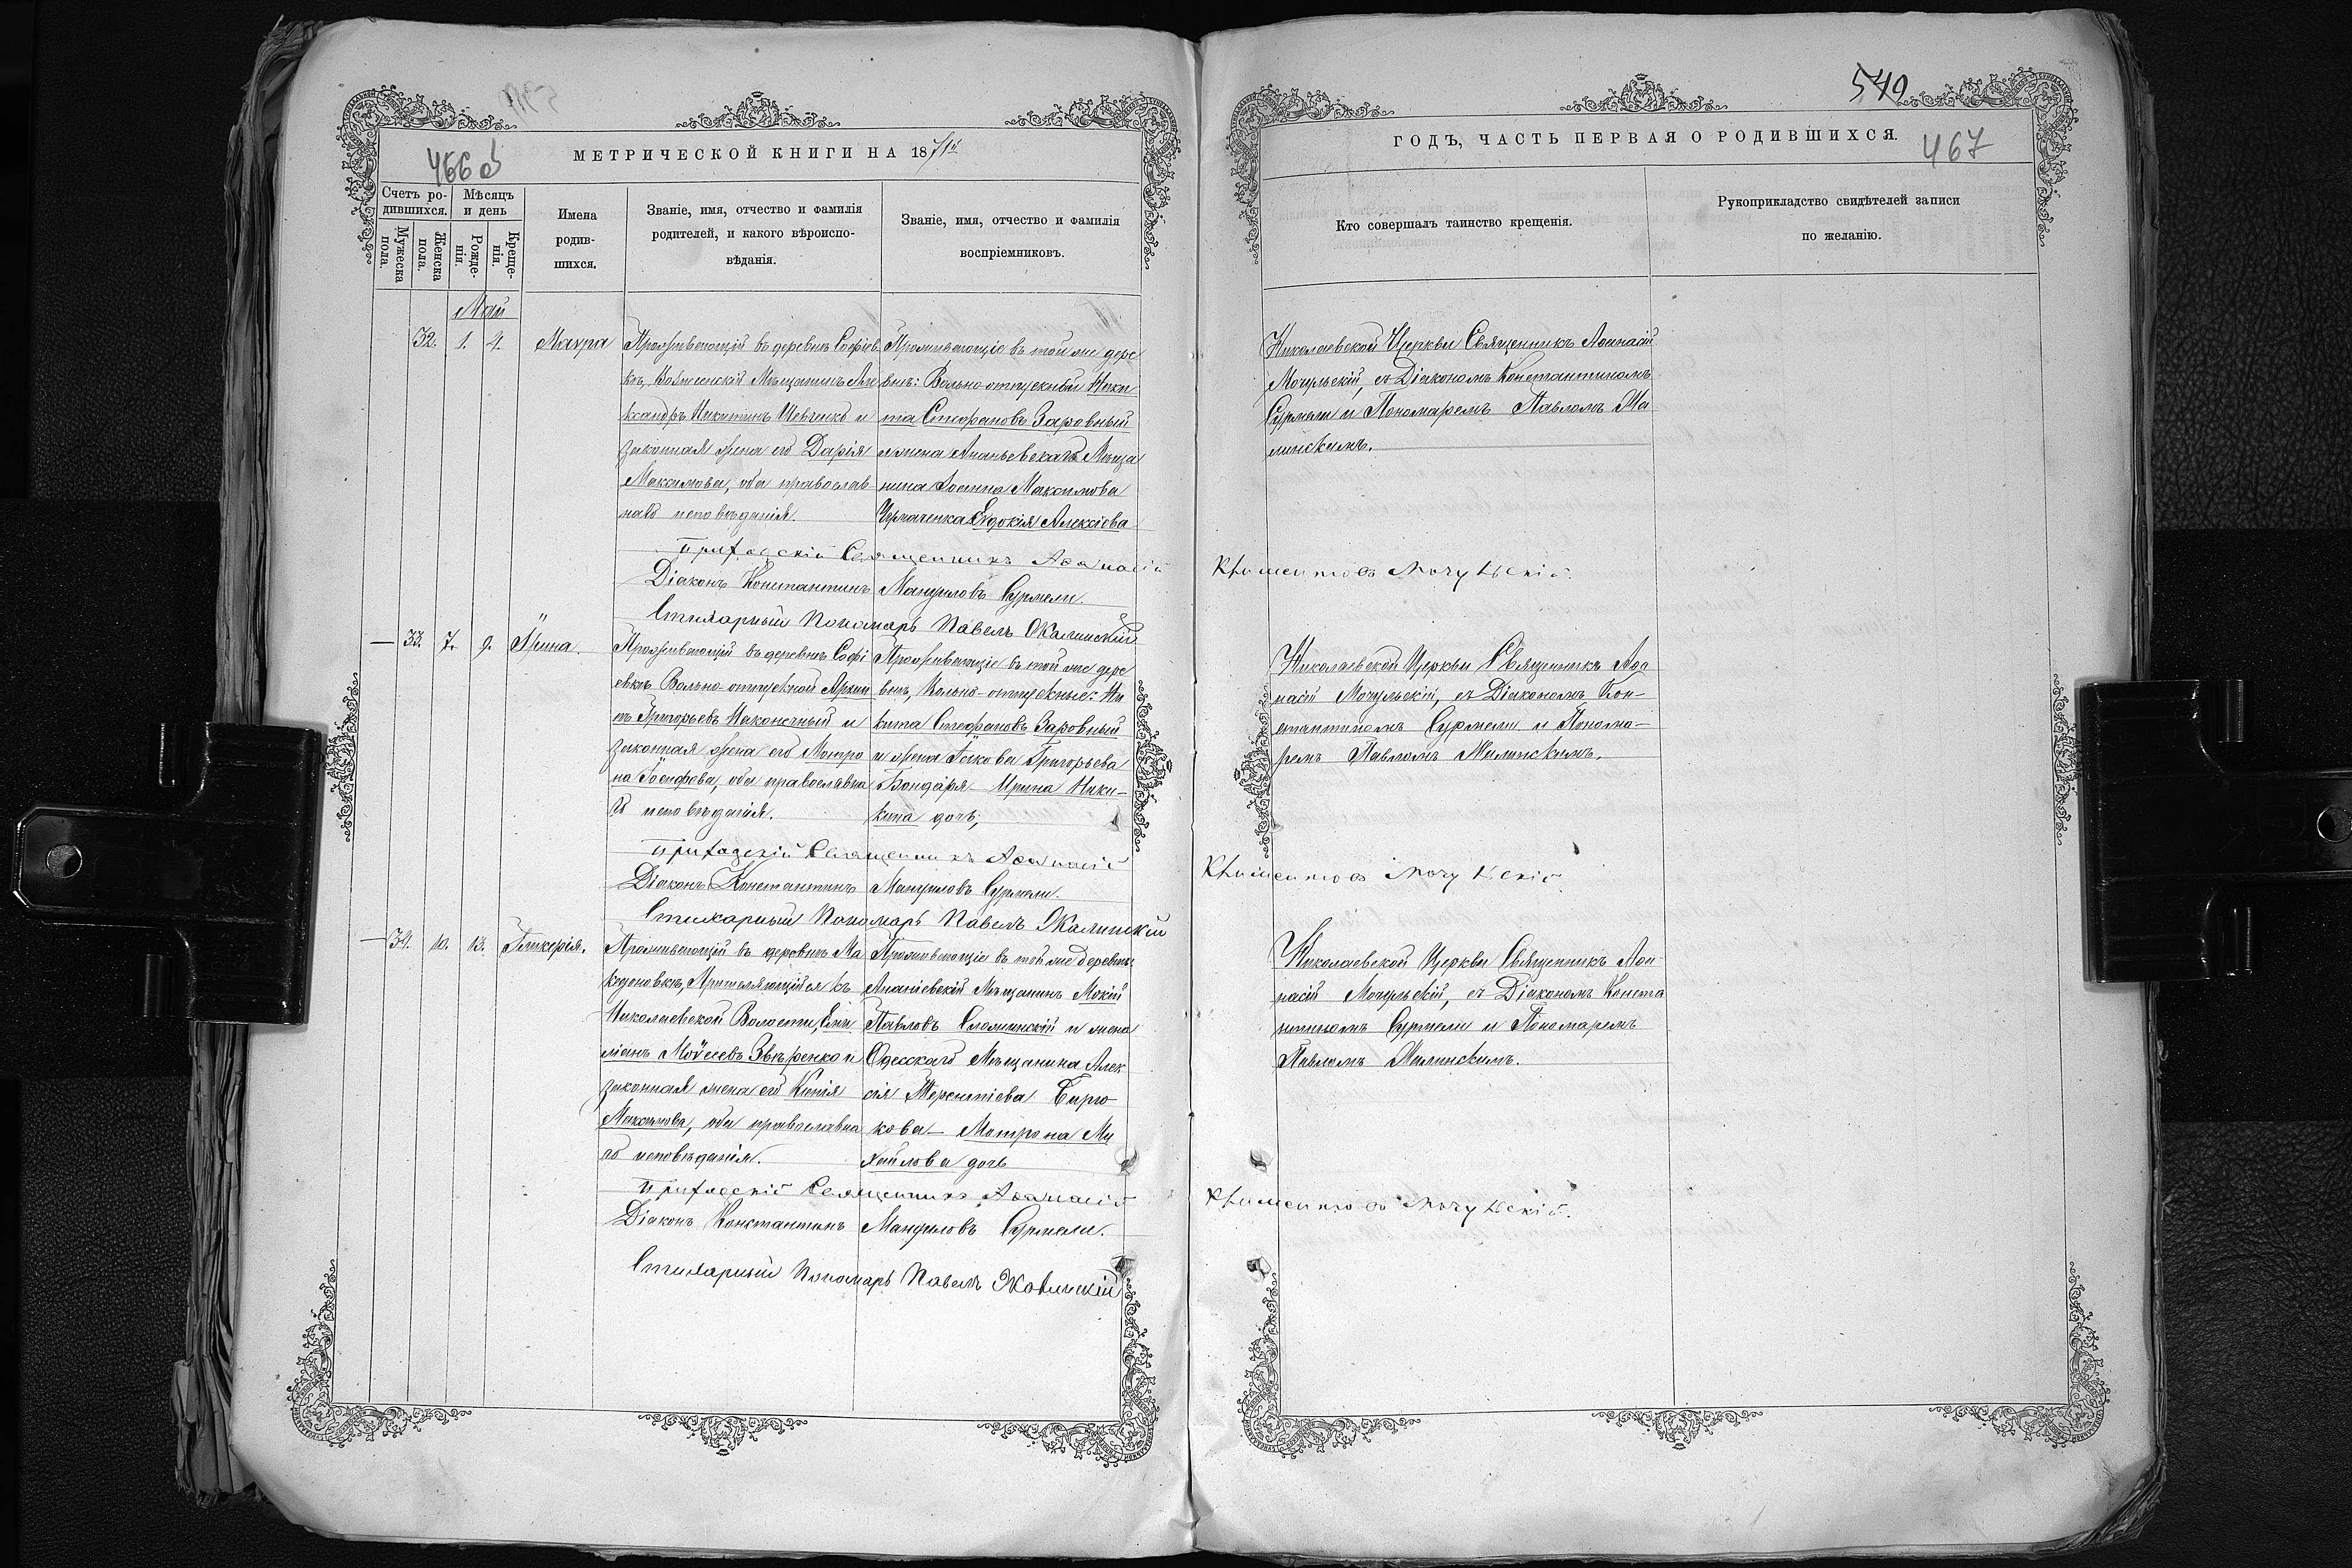 466 об
МЕТРИЧЕСКОЙ КНИГИ НА 1871й
Счетъ ро-
дившихся.
Мѣсяцъ
и день
Мужеска
пола.
Женска
пола.
Рожде-
нія.
Креще-
нія.
Имена
родив-
шихся.
Званіе, имя, отчество и фамилія
родителей, и какого вѣроиспо-
вѣданія.
Званіе, имя, отчество и фамилія
воспріемниковъ.
Май
32. 1. 4. Мавра
Проживающій въ деревнѣ Софіев
кѣ, Мѣщанинъ Але
ксандръ Никитинъ Шевченко и
законная жена его Дарія
Максимова, оба православ-
наго исповѣданія.
Проживающіе въ той же дере
внѣ: Вольно-отпускный Ники
та Стефановъ Заровный
и жена Ананьевскаго Мѣща
нина Іоанна Максимова
Евдокія Алексіева
Приходскій Священникъ Аѳанасій
Діаконъ Константинъ Мануиловъ Сурмели.
Стихарный Пономарь Павелъ Жалинскій
— 33. 7. 9. Ірина.
Проживающій въ деревнѣ Софі
евкѣ Вольно-отпускной
ъ Григорьевъ Наконечный и
законная жена его Мотро
на Іосифова, оба православна
го исповѣданія.
Проживающіе въ той же дере
внѣ, Вольно-отпускные: Ни
кита Стефановъ Заровный
и жена Іакова Григорьева
Бондаря — Ирина Ники-
дочь;
Приходскій Священникъ Аѳанасій
Діаконъ Константинъ Мануиловъ Сурмели.
Стихарный Пономарь Павелъ Жалинскій
— 34. 10. 13. Гликерія.
Проживающій въ деревнѣ Ма
кедоновкѣ, Причисляющійся къ
Николаевской Волости, Еми
ліанъ Моѵсеевъ Звѣренко и
законная жена его Ксенія
Максимова, оба православна
го исповѣданія.
Проживающіе въ той же деревнѣ:
Ананіевскій Мѣщанинъ Мокій
Павловъ Сломинскій и жена
Одесскаго Мѣщанина Алек
сія Терентіева Бирю
кова — Мотрона Ми
хайлова дочь
Приходскій Священникъ Аѳанасій
Діаконъ Константинъ Мануиловъ Сурмели.
Стихарный Пономарь Павелъ Жалинскій
467
ГОДЪ, ЧАСТЬ ПЕРВАЯ О РОДИВШИХСЯ.
Кто совершалъ таинство крещенія.
Рукоприкладство свидѣтелей записи
по желанію.
Николаевской Церкви Священникъ Аѳанасій
Мочульскій, съ Діакономъ Константиномъ
Сурмели и Пономаремъ Павломъ Жа
линскимъ.
Климентовъ Мочульскій.
Николаевской Церкви Священникъ Аѳа
насій Мочульскій, съ Діакономъ Кон-
стантиномъ Сурмели и Понома-
ремъ Павломъ Жалинскимъ.
Климентовъ Мочульскій.
Николаевской Церкви Священникъ Аѳа-
насій Мочульскій, съ Діакономъ Конста
нтиномъ Сурмели и Пономаремъ
Павломъ Жалинскимъ.
Климентовъ Мочульскій.